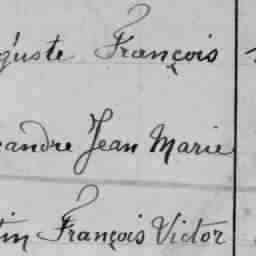 guste François
eandre Jean Marie
tin François Victor